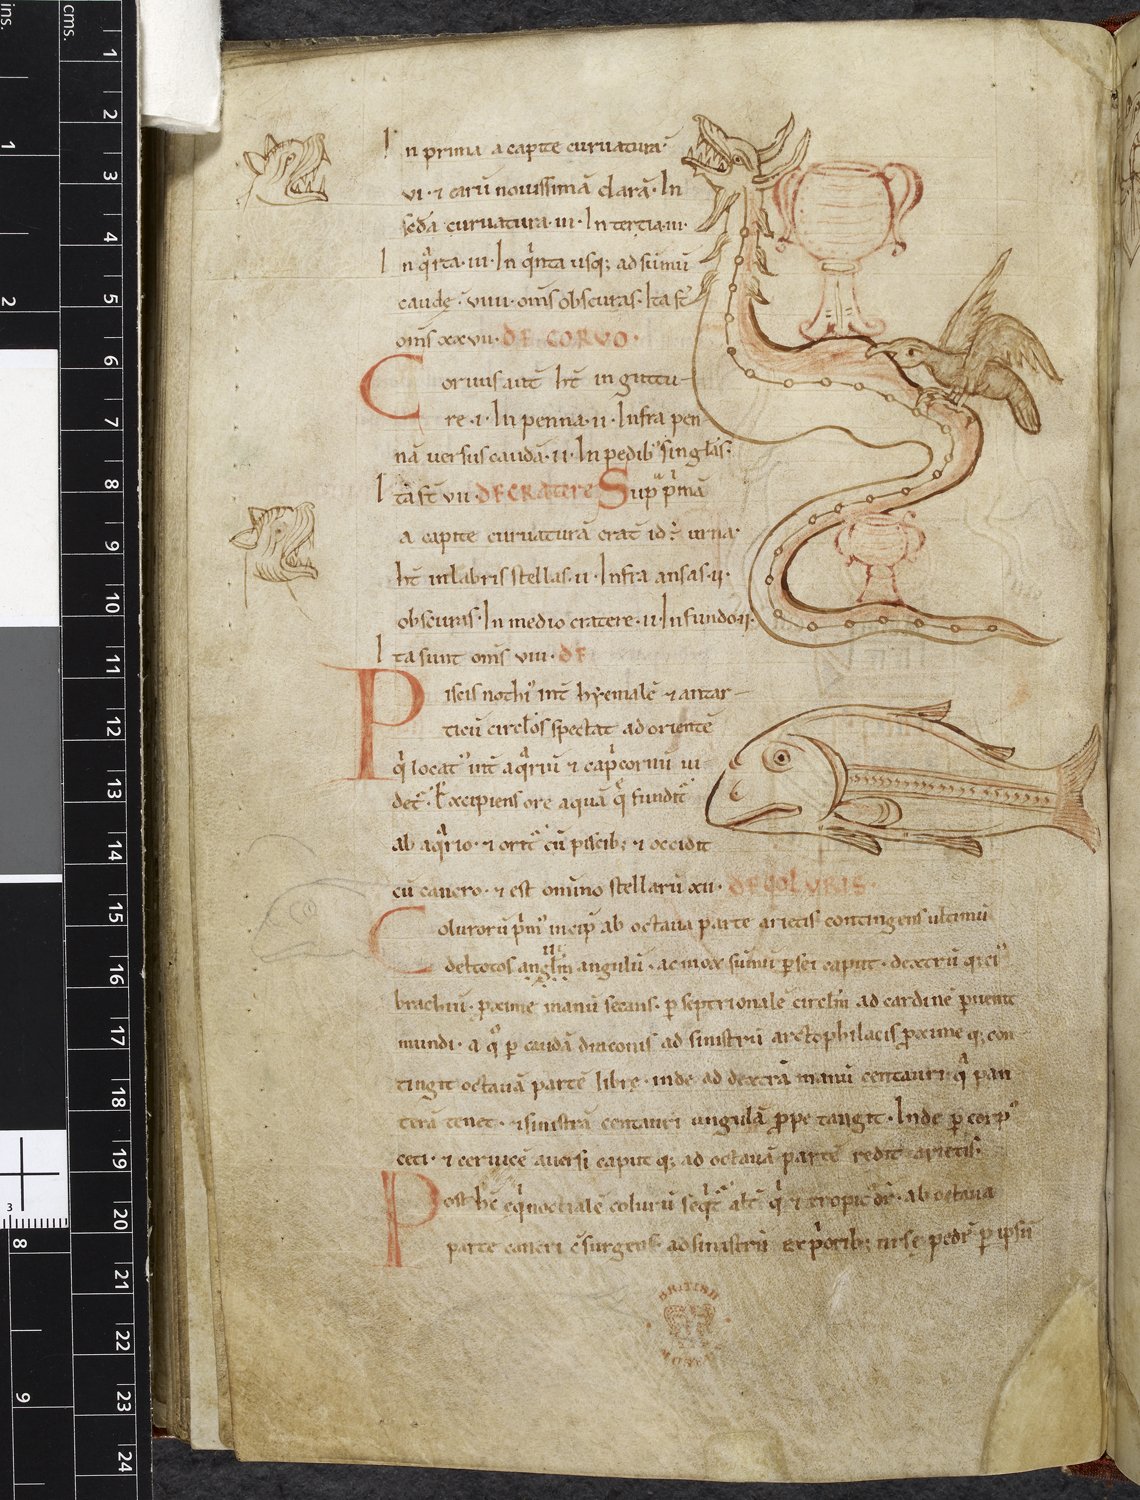 In prima a capite curuatura·
vi· ⁊ earū nouissimā clarā· In
sedā curuatura· iii· In tertia· iii·
In qͥrta· iii· In qͥnta usq; ad sūmū
caudę· viiii· om̄s obscuras· Ita st̄
om̄s xxvii· DE CORVO·
Coruus aut̄ ht̄ in guttu-
re· i· In penna· ii· Infra pen
nā uersus caudā· ii· In pedib; singlis·
Ita st̄ vii· DE CRATERE Sup pͥmā
a capite curuaturā erat id ē urna·
ht̄ in labris stellas· ii· Infra ansas· ii·
obscuras· In medio cratere· ii· In fundo· ii·
Ita sunt om̄s viii· DE
Piscis nothiꝰ int̄ hyemalē ⁊ antar-
ticū circlos spectat ad orientē
qͥ locatᷣ int̄ aqͣriū ⁊ capͥcornū
Excipiens ore aquā q̄ funditᷣ
ab aqͣrio· ⁊ oritᷣ cū piscib; ⁊ occidit
cū cancro· ⁊ est omnino stellarū xii· DE COLURIS·
Colurorū pͥmꝰ incip̄ ab octaua parte arietis contingens ultimū
deltotos angulū· ac mox sūmū ꝑsei caput· dextrū
brachiū· ꝓxime manū secans· ꝑ septrionalē circlm̄ ad cardinē ꝑuenit
mundi· a qͦ ꝑ caudā draconis ad sinistrū arctophilacis ꝓxime q; con
tingit octauā partē librę· inde ad dextrā manū centauri· qͣ pan
terā tenet· ⁊ sinistrā centauri ungulā ꝓpe tangit· Inde ꝑ corpꝰ
ceti· ⁊ ceruicē auersi caput q; ad octauā partē redit arietis·
Post hc̄ eqͥnoctialē colurū seqͥt̄ alt̄ qͥ ⁊ tropicꝰ dr̄· ab octaua
parte cancri c̄surgens ad sinistrū expͥorib; ursę pedē ꝑ ipsū
BRITISH
ins.
cms.
1
2
3
4
5
6
7
8
9
10
11
12
13
14
15
16
17
18
19
20
21
22
23
24
1
2
3
8
9